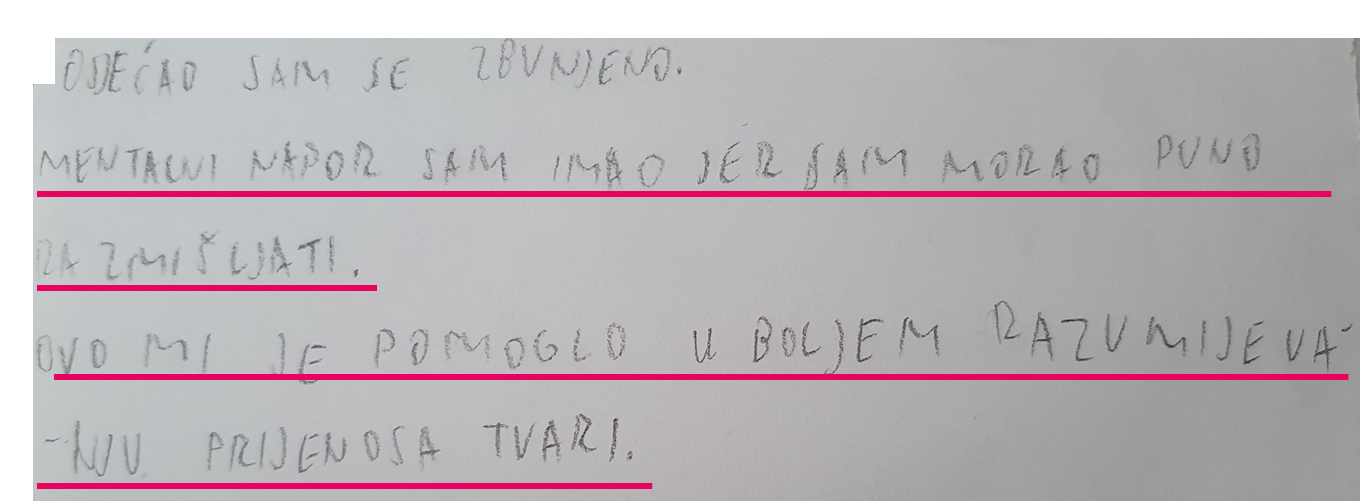 OSJEĆAO SAM SE ZBUNJENO.
MENTALNI NAPOR SAM IMAO JER SAM MORAO PUNO
RAZMIŠLJATI.
OVO MI JE POMOGLO U BOLJEM RAZUMIJEVA-
-NJU PRIJENOSA TVARI.